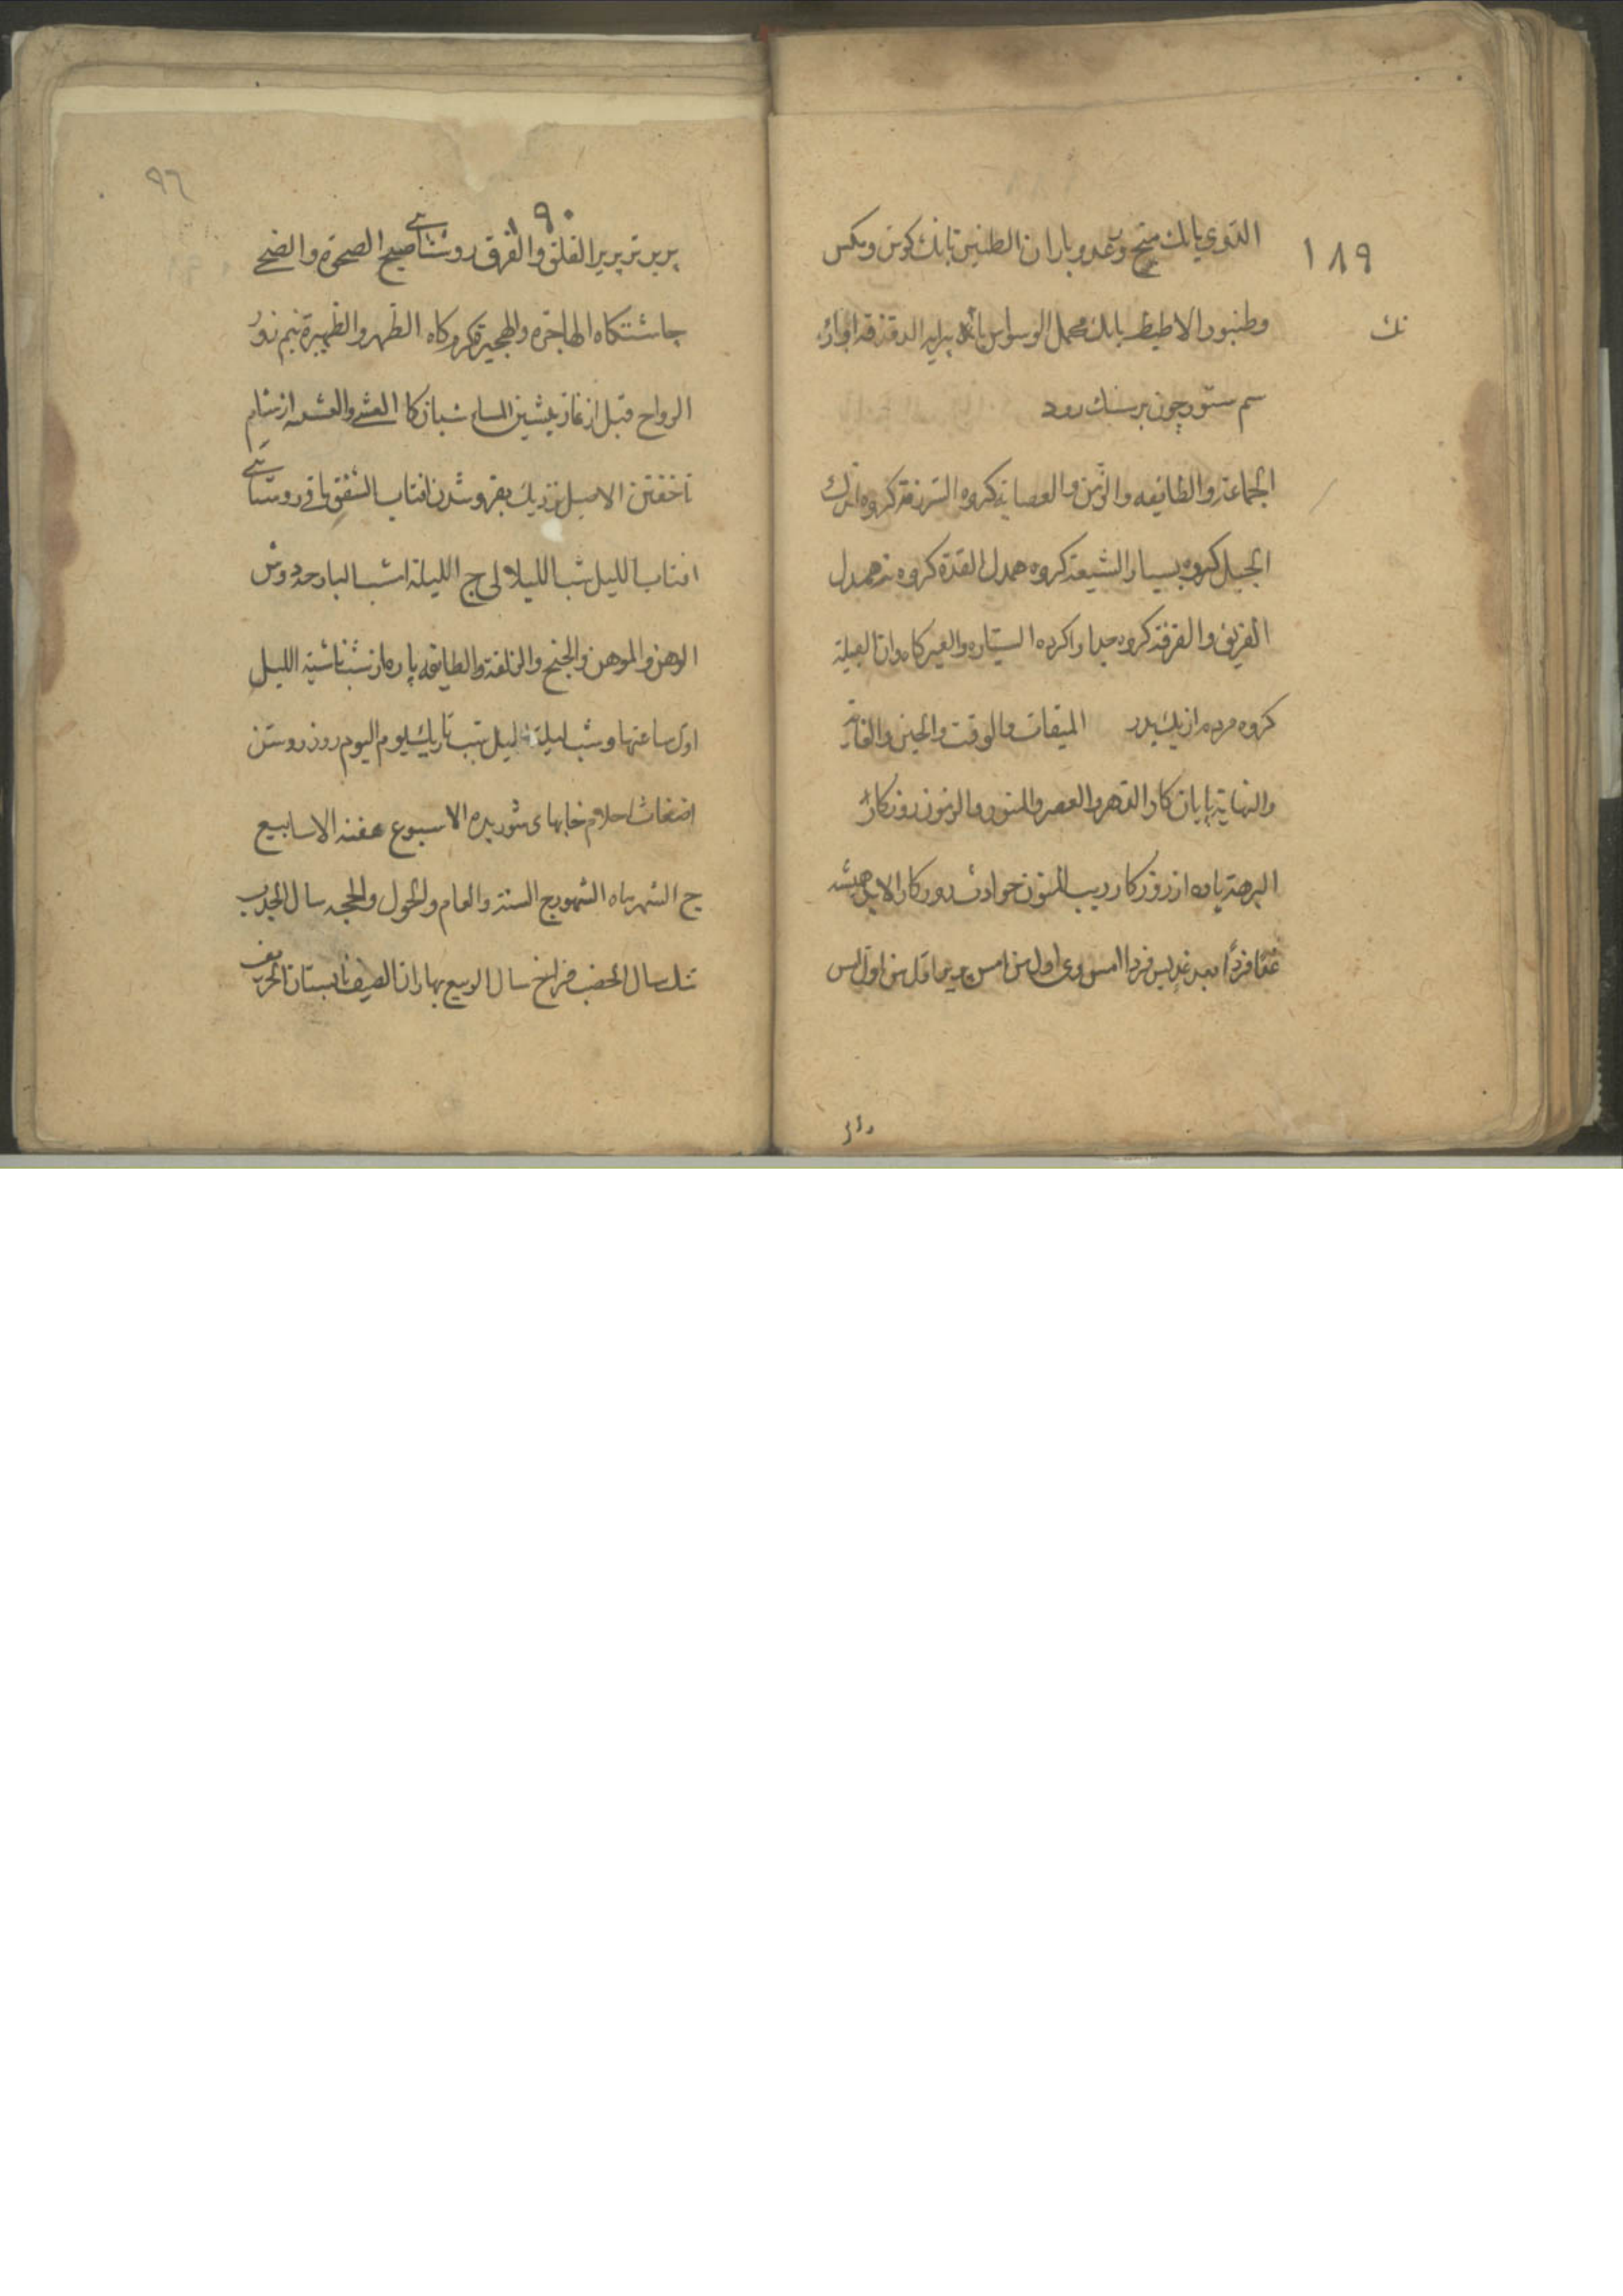 ١٨٩
الدوی بانك منج و رعد و باران الطنین بانك كوش و مكس
نك
وطنبور الاطیط بانك محمل الوسواس بانك پیرایه الدقدقة اواز
سم ستور چون بر سنك رود
الجماعة والطایفه والزمن والعصابة كروه الشرذمة كروه اندك
الجبل كروه بسیار الشیعة كروه همدل القدة كروه نه همدل
الفریق والفرقة كروه جدا واكرده السیاره والعیر كاروان القبیلة
كروه مردم از یك پدر المیقات والوقت والحین والغایة
والنهایة پایان كار الدهر والعصر والمنون روزكار
البرهة پاره از روزكار ریب المنون حوادث روزكار الابد همیشه
غدا فردا بعد غد پس فردا امس دی اول من امس پریر اول من اول امس
٩٦
١٩٠
پریر تر پریر الفلق والفرق روشنائی صبح الضحوة والضحی
چاشتكاه الهاجرة والهجیرة كرمكاه الظهر والظهیرة نیم روز
الرواح قبل از نماز پیشین المساء شبانكاه العشی والعشیه از شام
تا خفتن الاصیل نزدیك بفرو شدن افتاب الشفق باقی روشنائی
افتاب اللیل شب اللیالی ج اللیلة امشب البارحه دوش
الوهن والموهن والجنح والزلفة والطایفه پاره از شب ناشئة اللیل
اول ساعتها و شب لیلة لیل شب تاریك یوم الیوم روز روشن
اضغاث احلام خابهای شوریده الاسبوع هفته الاسابیع
ج الشهر ماه الشهور ج السنة والعام والحول والحجه سال الجدب
تنك سال الخصب فراخ سال الربیع بهاران الصیف تابستان الخریف